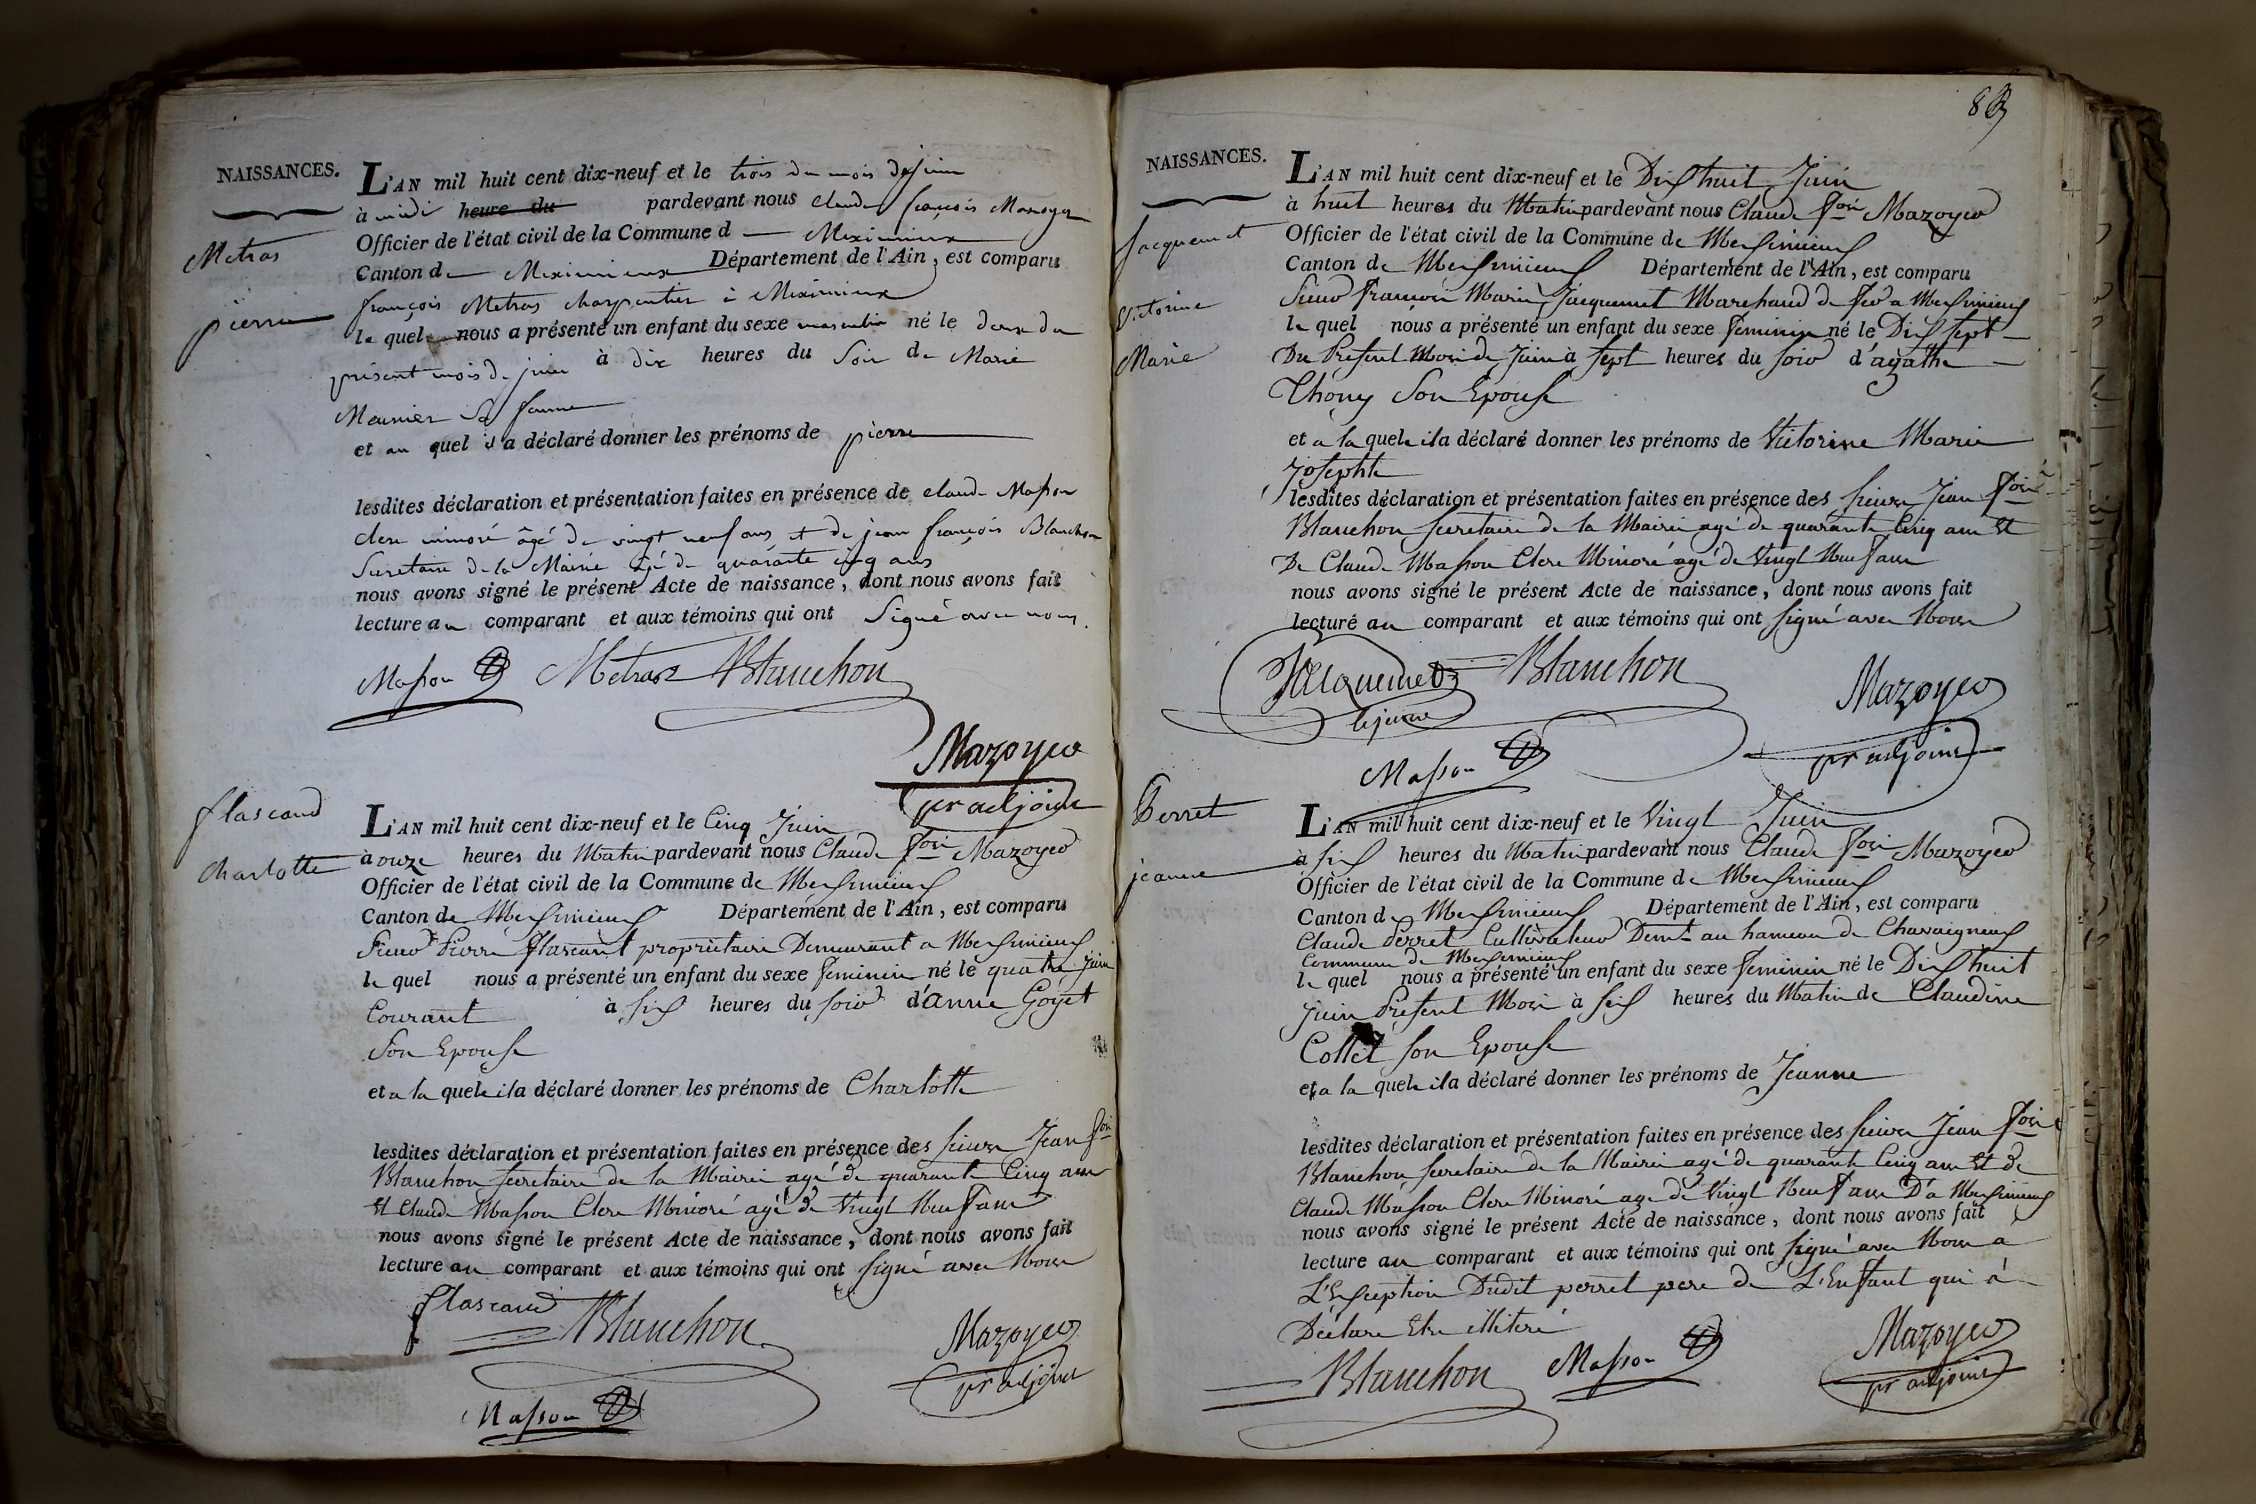 NAISSANCES.
Metras
pierre
L'AN mil huit cent dix-neuf et le trois du mois de juin
à midi heure du pardevant nous claude françois Mazoyer
Officier de l'état civil de la Commune d Meximieux
Canton de Meximieux Département de l'Ain, est comparu
françois Metras charpentier à Meximieux
lequel nous a présenté un enfant du sexe masculin né le deux du
présent mois de juin à dix heures du soir de Marie
Meunier sa femme
et au quel il a déclaré donner les prénoms de pierre
lesdites déclaration et présentation faites en présence de claude Masson
clerc minoré âgé de vingt neuf ans et de jean françois Blanchon
Secretaire de la Mairie âgé de quarante cinq ans
nous avons signé le présent Acte de naissance, dont nous avons fait
lecture au comparant et aux témoins qui ont signé avec nous.
Masson Metras Blanchon
Mazoyer
pr adjoint
flascand
charlotte
L'AN mil huit cent dix-neuf et le Cinq Juin
à onze heures du Matin pardevant nous Claude fois Mazoyer
Officier de l'état civil de la Commune de Meximieux
Canton de Meximieux Département de l'Ain, est comparu
Sieur Pierre flascant propriétaire Demeurant a Meximieux
le quel nous a présenté un enfant du sexe feminin né le quatre Juin
Courant à six heures du soir d'anne Goyet
Son Epouse
et a la quelle il a déclaré donner les prénoms de Charlotte
lesdites déclaration et présentation faites en présence des sieurs Jean fois
Blanchon secretaire de la Mairie agé de quarante Cinq ans
Et Claude Masson Clerc Minoré agé de Vingt Neuf ans
nous avons signé le présent Acte de naissance, dont nous avons fait
lecture au comparant et aux témoins qui ont signé avec Nous
flascand Blanchon Mazoyer
pr adjoint
Masson
83
NAISSANCES.
Jacquemet
Victorine
Marie
L'AN mil huit cent dix-neuf et le Dix huit Juin
à huit heures du Matin pardevant nous Claude fois Mazoyer
Officier de l'état civil de la Commune de Meximieux
Canton de Meximieux Département de l'Ain, est comparu
Sieur francois Marie Jacquemet Marchand de fer a Meximieux
le quel nous a présenté un enfant du sexe feminin né le Dix sept
Du Présent Mois de Juin à sept heures du soir d'agathe
Thony Son Epouse
et a la quelle il a déclaré donner les prénoms de Victorine Marie
Josephte
lesdites déclaration et présentation faites en présence des sieurs Jean fois
Blanchon secretaire de la Mairie agé de quarante Cinq ans Et
De Claude Masson Clerc Minoré agé de Vingt Neuf ans
nous avons signé le présent Acte de naissance, dont nous avons fait
lecture au comparant et aux témoins qui ont signé avec Nous
Jacquemet Blanchon Mazoyer
le jeune pr adjoint
Masson
Perret
jeanne
L'AN mil huit cent dix-neuf et le Vingt Juin
à six heures du Matin pardevant nous Claude fois Mazoyer
Officier de l'état civil de la Commune de Meximieux
Canton de Meximieux Département de l'Ain, est comparu
Claude Perret Cultivateur Demt au hameau de Chavaigneux
Commune de Meximieux
le quel nous a présenté un enfant du sexe feminin né le Dix huit
Juin Présent Mois à six heures du Matin de Claudine
Collet son Epouse
et a la quelle il a déclaré donner les prénoms de Jeanne
lesdites déclaration et présentation faites en présence des sieurs Jean fois
Blanchon secretaire de la Mairie agé de quarante Cinq ans Et de
Claude Masson Clerc Minoré agé de Vingt Neuf ans D'a Meximieux
nous avons signé le présent Acte de naissance, dont nous avons fait
lecture au comparant et aux témoins qui ont signé avec Nous a
L'Exception Dudit perret pere de L'Enfant qui a
Déclare Etre illiteré
Blanchon Masson Mazoyer
pr adjoint